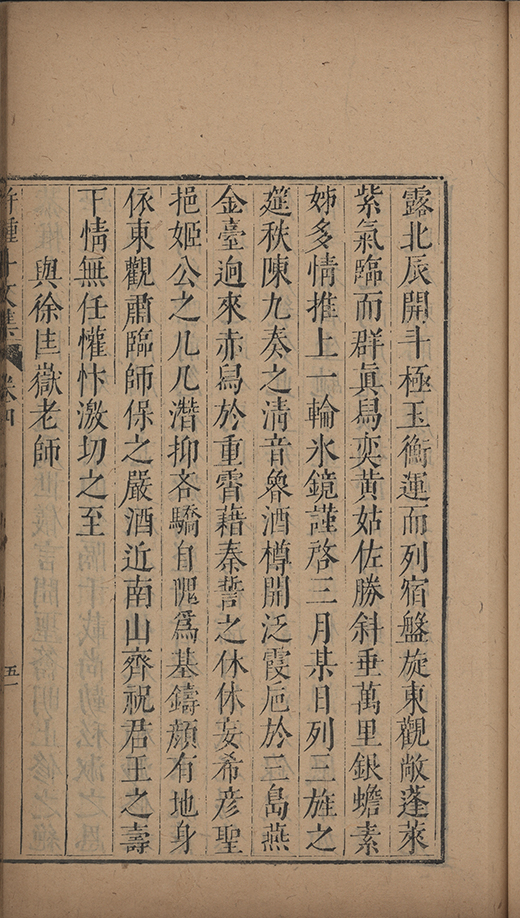 露北辰開斗極玉衡運而列宿盤旋東觀敞蓬萊
紫氣臨而群眞舄奕黃姑佐勝斜垂萬里銀蟾素
姊多情推上一輪氷鏡謹啓三月某日列三旌之
筵秩陳九奏之清音魯酒樽開泛霞巵於三島燕
金臺逈來赤舄於重霄藉秦誓之休休妄希彥聖
挹姬公之几几潛抑吝驕自隗爲基鑄顔有地身
依東觀肅臨師保之嚴酒近南山齊祝君王之壽
下情無任懽忭激切之至
與徐匡嶽老師
許鍾斗文集 卷四
五一